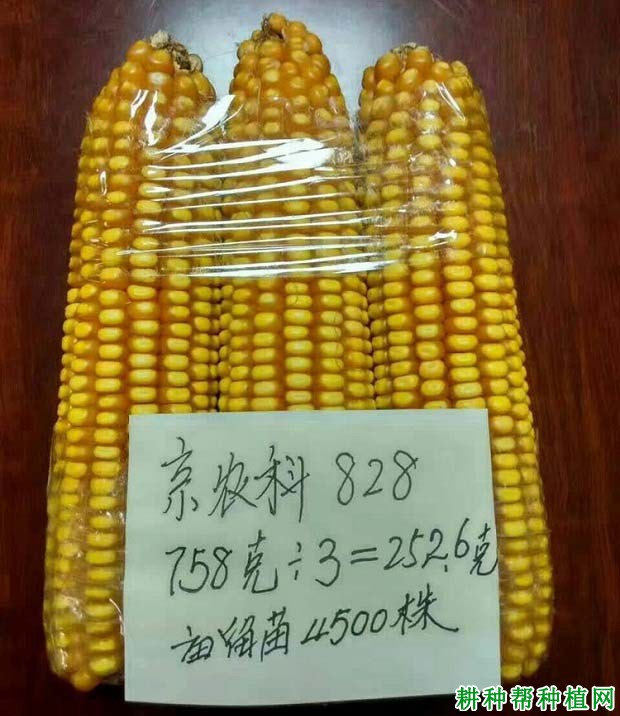 京农科 828
758克÷3=252.6克
亩留苗4500株
耕种帮种植网